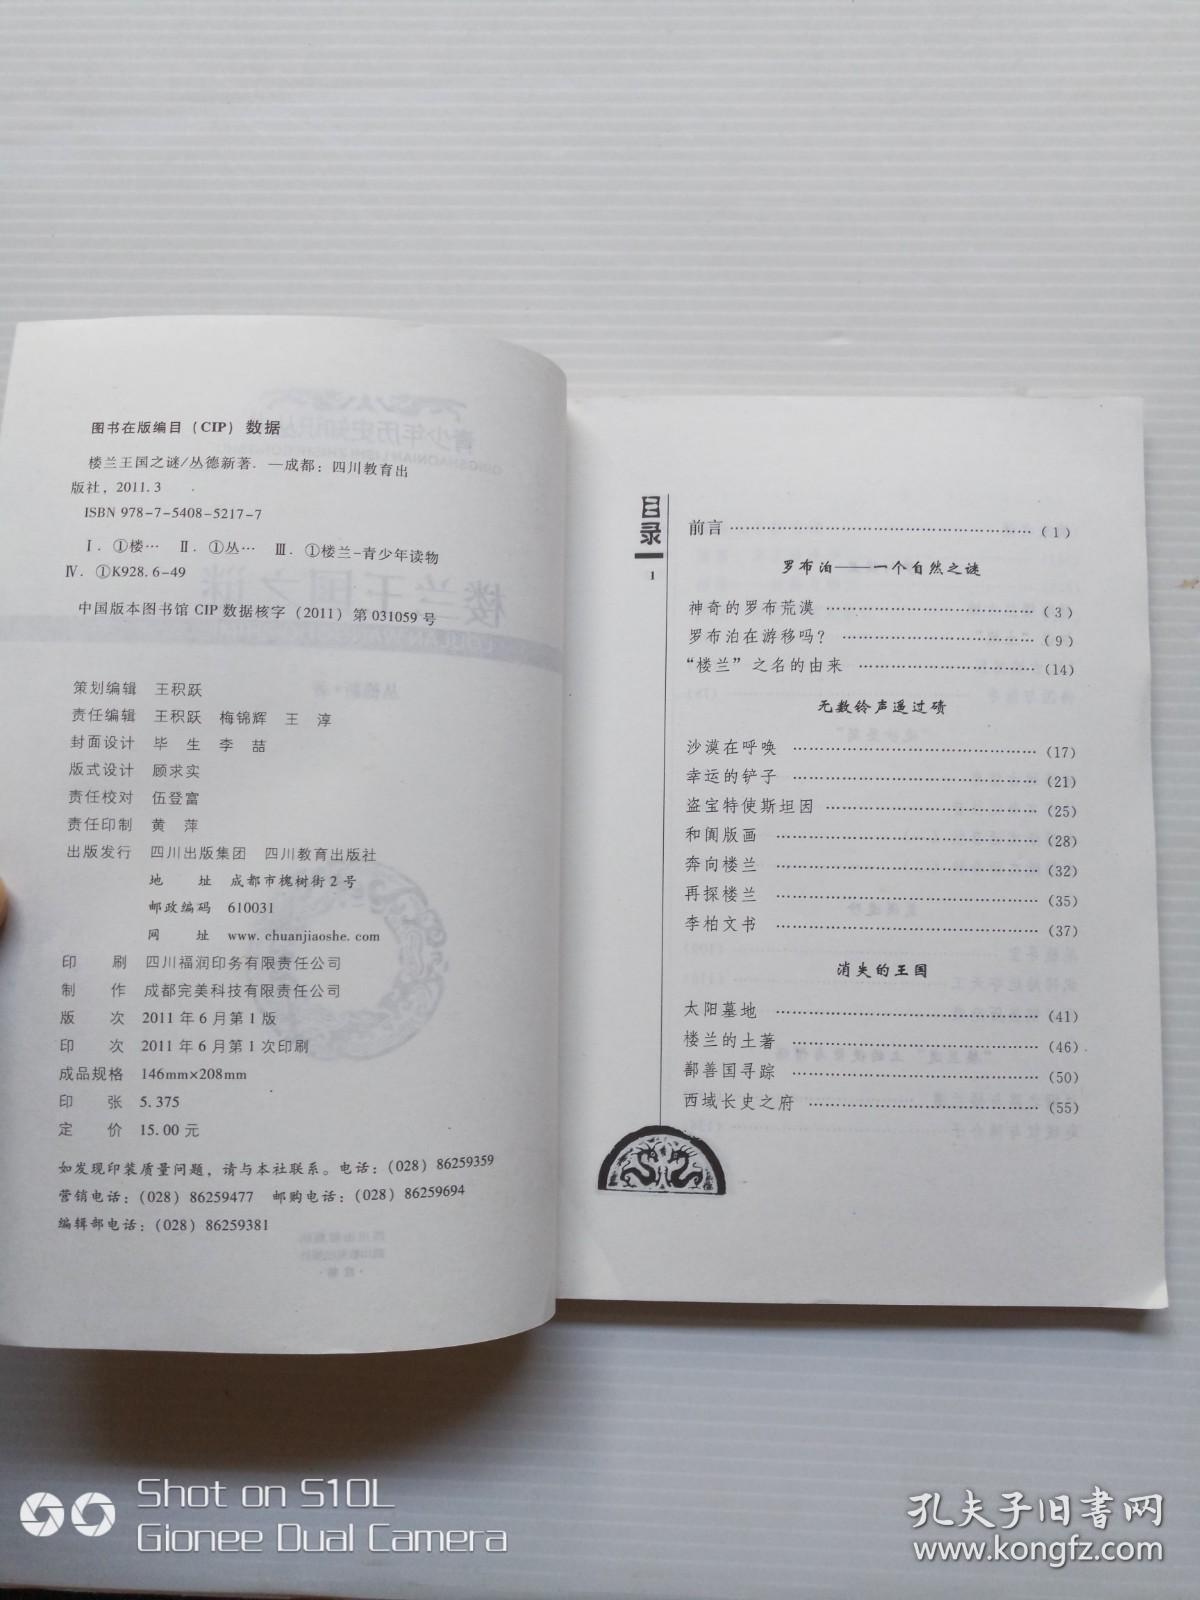 图书在版编目（CIP）数据
楼兰王国之谜/丛德新著. —成都：四川教育出
版社，2011.3
ISBN 978-7-5408-5217-7
Ⅰ. ①楼… Ⅱ. ①丛… Ⅲ. ①楼兰-青少年读物
Ⅳ. ①K928.6-49
中国版本图书馆 CIP 数据核字（2011）第 031059 号
策划编辑 王积跃
责任编辑 王积跃 梅锦辉 王 淳
封面设计 毕 生 李 喆
版式设计 顾求实
责任校对 伍登富
责任印制 黄 萍
出版发行 四川出版集团 四川教育出版社
地 址 成都市槐树街 2 号
邮政编码 610031
网 址 www.chuanjiaoshe.com
印 刷 四川福润印务有限责任公司
制 作 成都完美科技有限责任公司
版 次 2011 年 6 月第 1 版
印 次 2011 年 6 月第 1 次印刷
成品规格 146mm×208mm
印 张 5.375
定 价 15.00 元
如发现印装质量问题，请与本社联系。电话：（028）86259359
营销电话：（028）86259477 邮购电话：（028）86259694
编辑部电话：（028）86259381
目录
1
前言……………………………………………（1）
罗布泊——一个自然之谜
神奇的罗布荒漠 ……………………………（3）
罗布泊在游移吗？ …………………………（9）
“楼兰”之名的由来 …………………………（14）
无数铃声遥过碛
沙漠在呼唤 …………………………………（17）
幸运的铲子 …………………………………（21）
盗宝特使斯坦因 ……………………………（25）
和阗版画 ……………………………………（28）
奔向楼兰 ……………………………………（32）
再探楼兰 ……………………………………（35）
李柏文书 ……………………………………（37）
消失的王国
太阳墓地 ……………………………………（41）
楼兰的土著 …………………………………（46）
鄯善国寻踪 …………………………………（50）
西域长史之府 ………………………………（55）
Shot on S10L
Gionee Dual Camera
孔夫子旧书网
www.kongfz.com